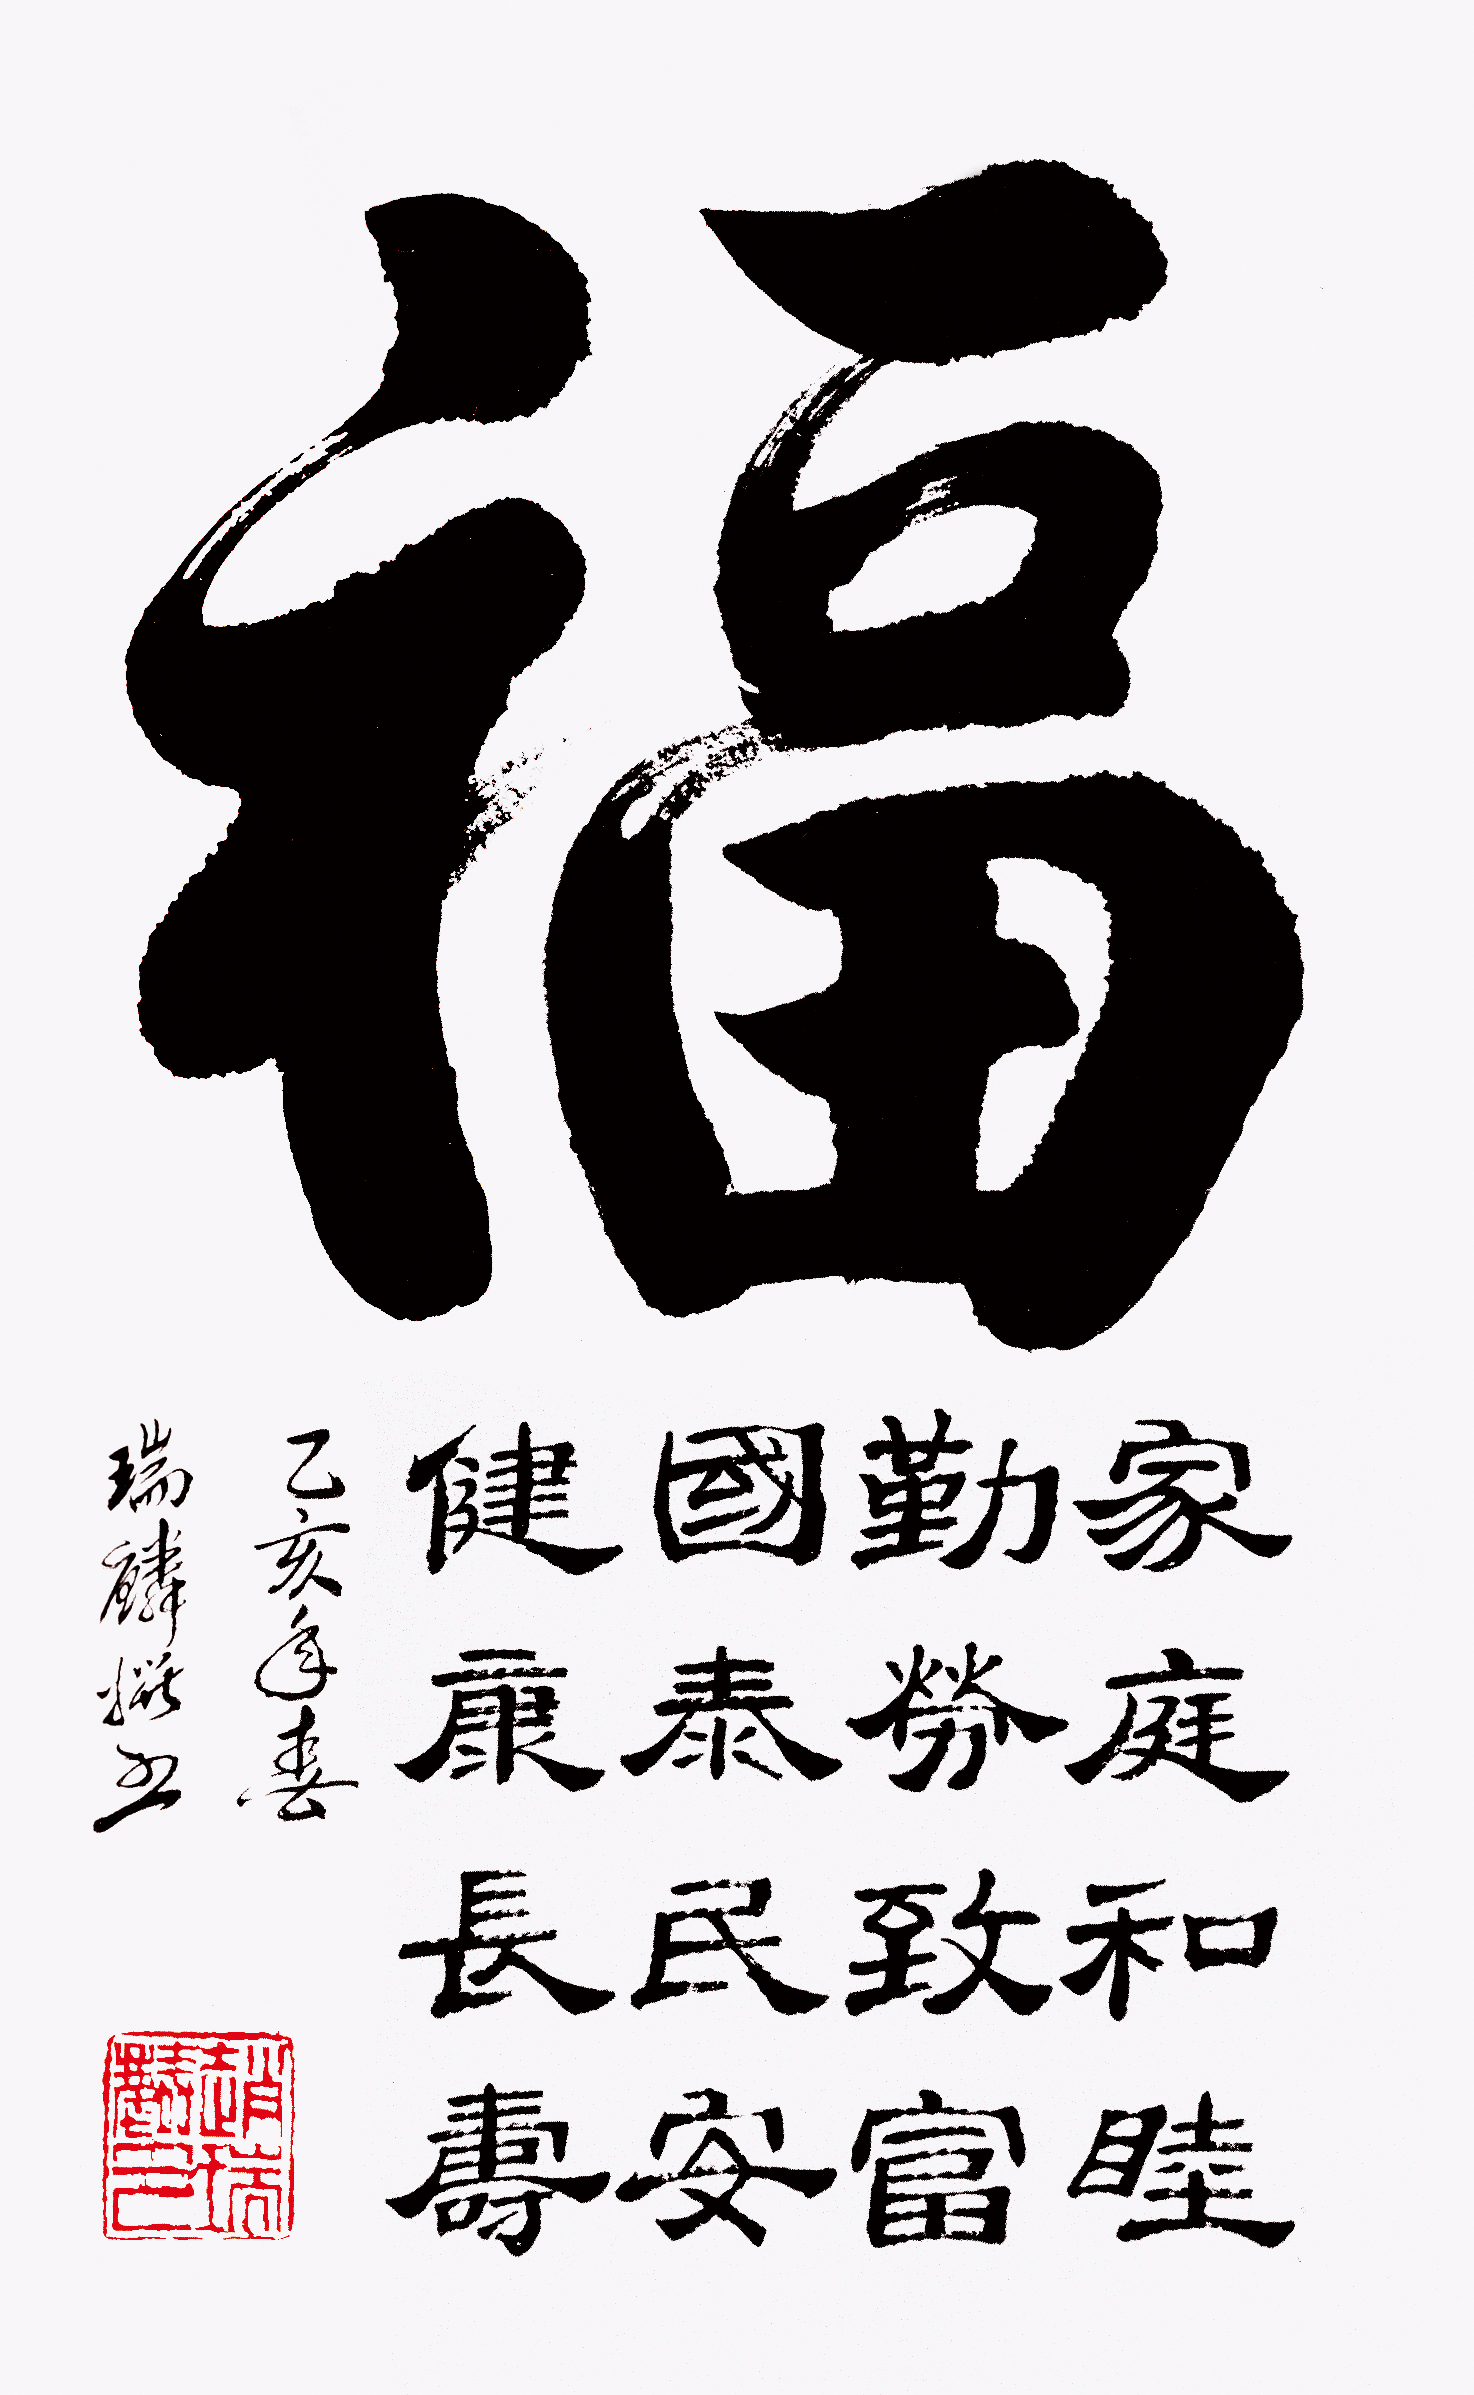 福
家庭和睦
勤勞致富
國泰民安
健康長壽
乙亥年春
瑞麟撰書